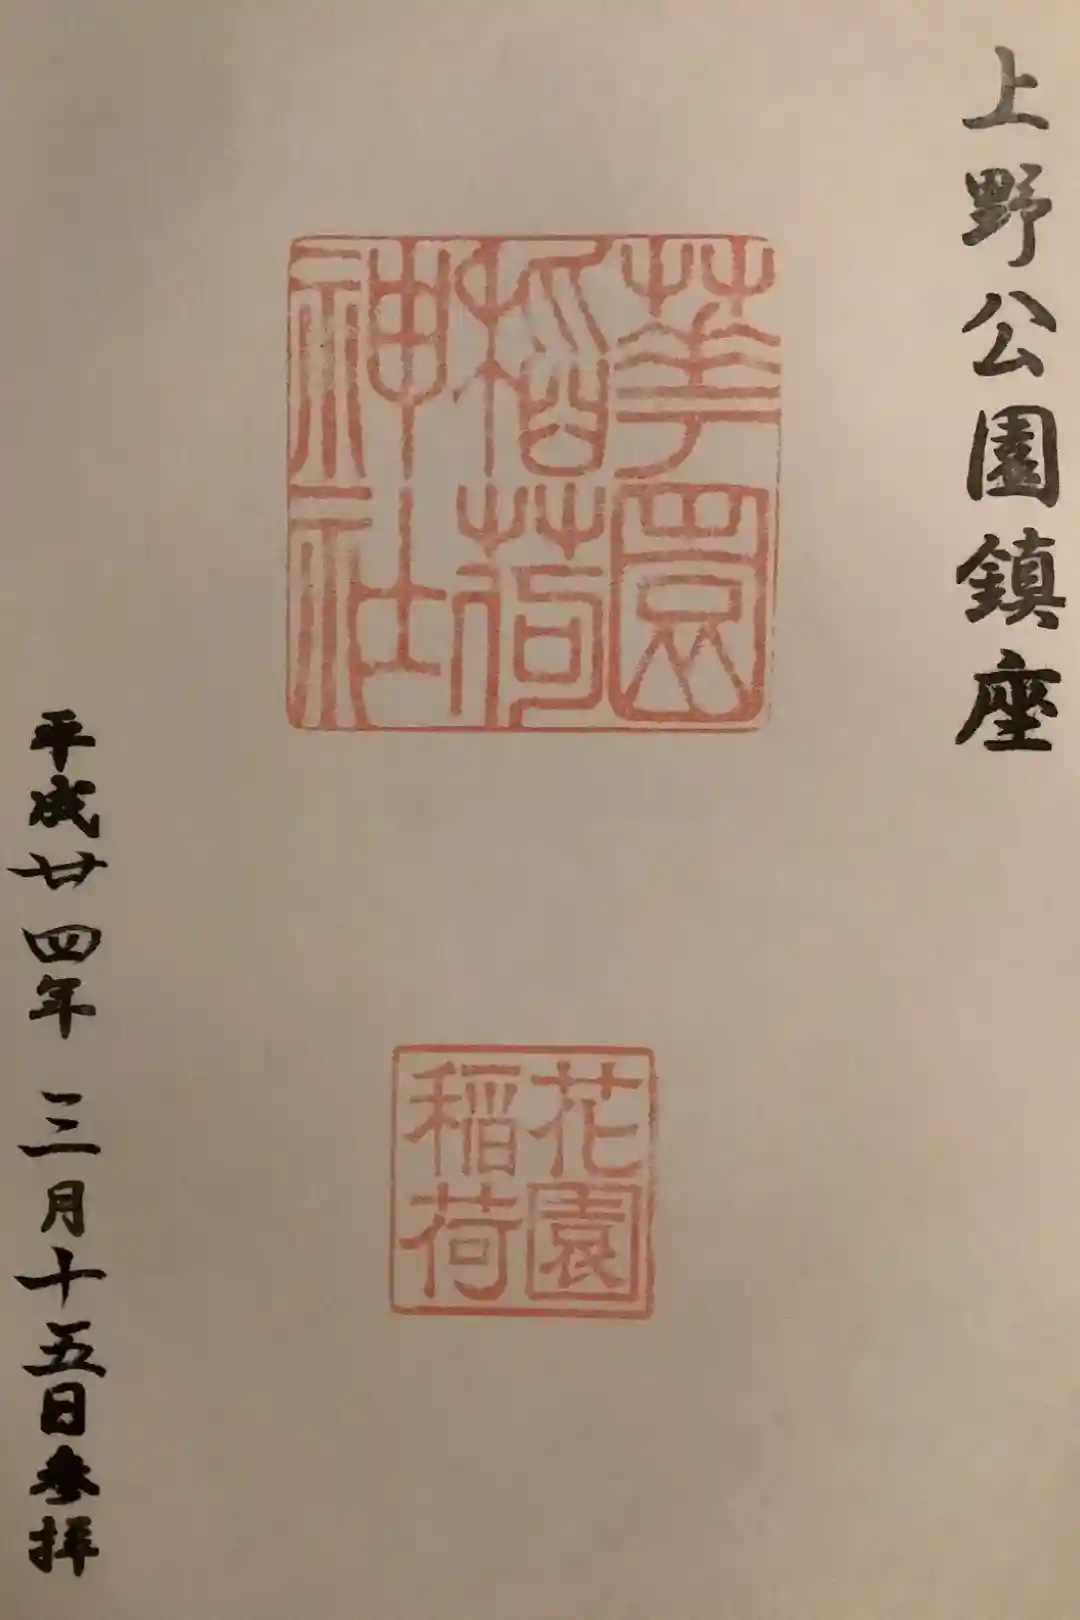 上野公園鎮座
華園
稲荷
神社
花園
稲荷
平成廿四年三月十五日参拝